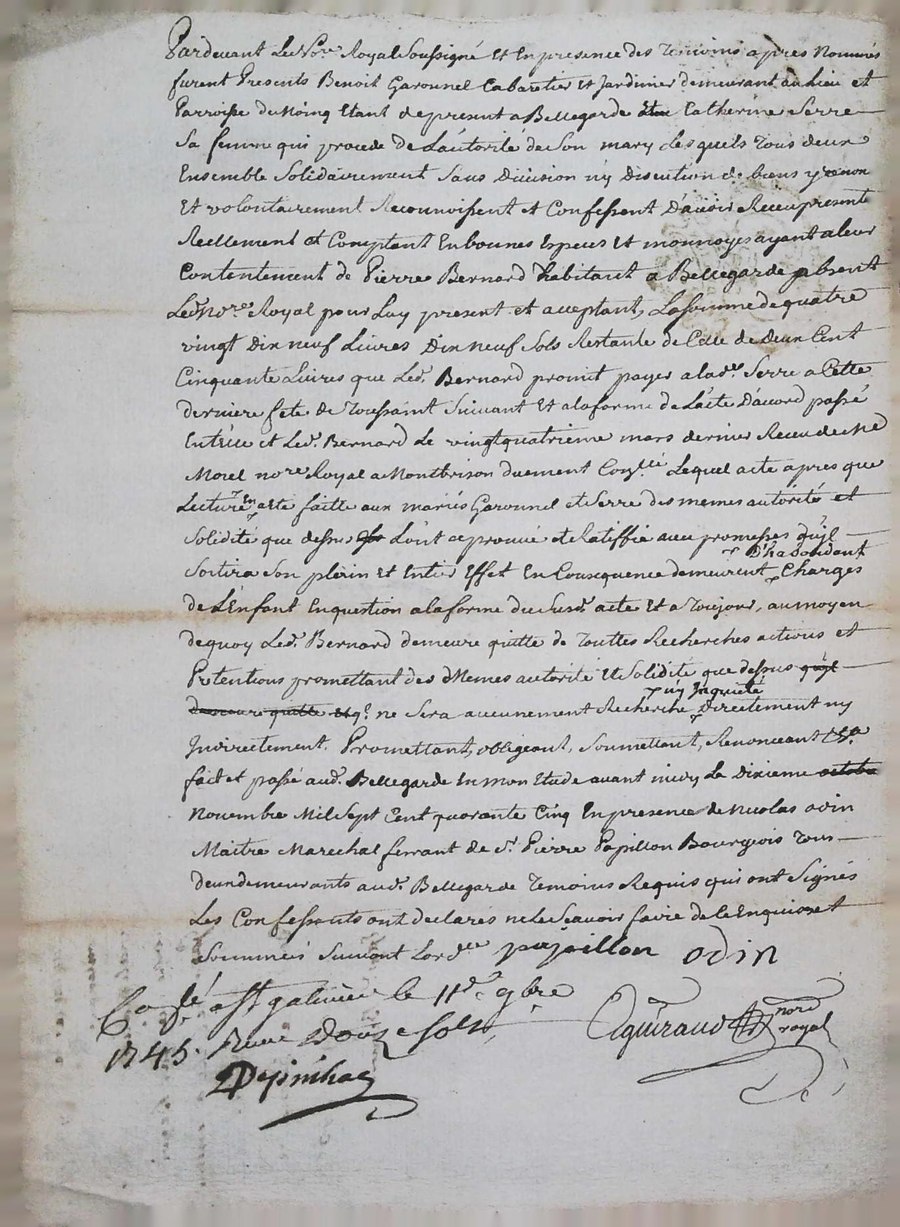 Pardevant Le No.re Royal Soussigné Et En presence des Temoins apres Nommés
furent Presents Benoit Garounel Cabaretier Et Jardinier demeurant au lieu et
Parroisse de Moing Etant de present a Bellegarde Catherine Serre
Sa femme qui procede de L'autorité de Son mary Lesquels Tous deux
Ensemble Solidairement Sans Division n'y Discution de biens
Et volontairement Reconnoissent et Confessent D'avoir Receu presente
Reellement et Comptant En bonnes Especes Et monnoyes ayant a leur
Contentement de Pierre Bernard habitant a Bellegarde absent
Led. No.re Royal pour Luy present et acceptant, La Somme de quatre
vingt Dix neuf Livres Dix neuf Sols Restante de Celle de Deux Cent
Cinquante Livres que Led. Bernard promit payer a lad. Serre a Cette
derniere fete de Toussaint Suivant Et a la forme de L'acte D'accord passé
Entr'elle et Led. Bernard Le vingt quatrieme mars dernier Receu de Me
Morel no.re Royal a Montbrison duement Con.llé Lequel acte apres que
Lecture en a eté faitte aux mariés Garounel et Serre des memes autorité et
Solidité que dessus L'ont aprouvé et Ratiffié avec promesses qu'il
D'habondant
Sortira Son plein et Entier Effet En Consequence demeurent Chargés
de L'Enfant En question a la forme du Susd. acte Et a Toujour, au moyen
de quoy Led. Bernard demeure quitte de Touttes Recherches actions et
Pretentions promettant des d. Memes autorité et Solidité que dessus qu'il
n'y Inquieté
demeure quitte et q. ne Sera aucunement Recherché Directement ny
Indirectement. Promettant, obligeant, Soumettant, Renonceant &a
fait et passé aud. Bellegarde En mon Etude avant midy Le Dixieme octobre
Novembre Mil Sept Cent quarante Cinq En presence de Nicolas odin
Maitre Marechal ferrant de Sr. Pierre Papillon Bourgeois Tous
deux demeurants aud. Bellegarde Temoins Requis qui ont Signés
Les Confessants ont declarés ne le Scavoir faire de ce Enquis et
Sommés Suivant L'ord.ce papillon odin
Con.lé a St galmier le 11e 9bre
1745. Receu Douze Sols
Eguiraud no.re royal
Depinhac